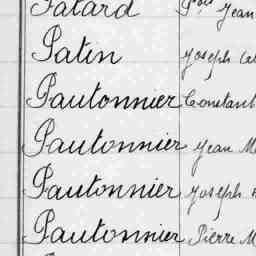 Patard Jean
Patin Joseph
Pautonnier Constant
Pautonnier Jean M
Pautonnier Joseph
Pautonnier Pierre M